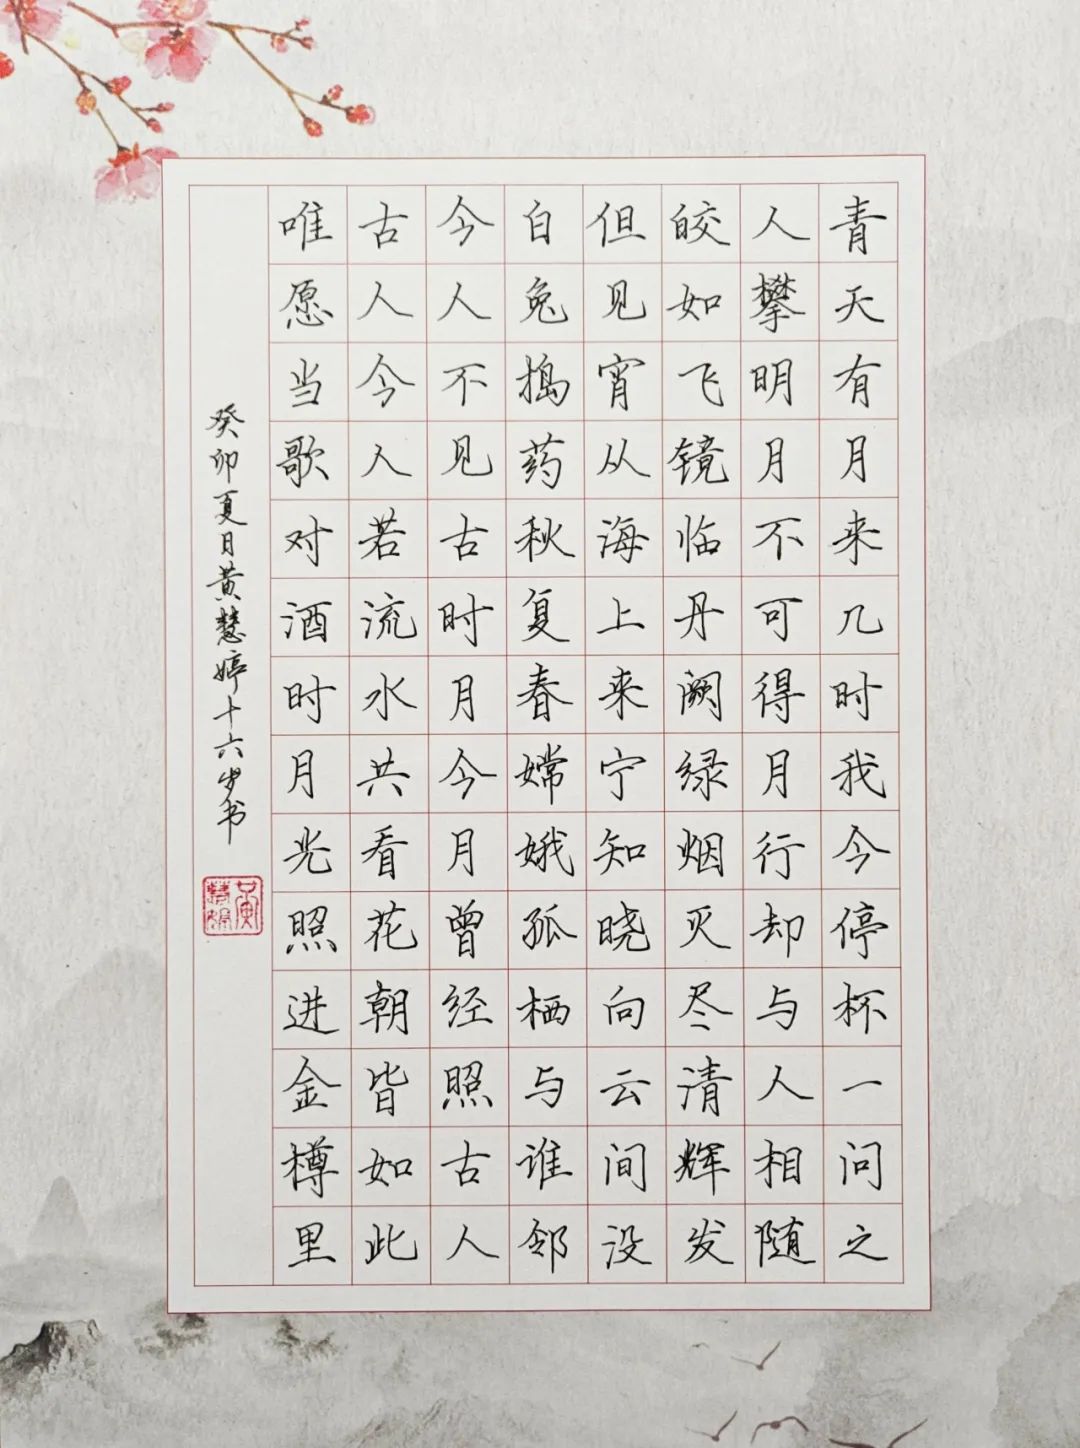 青天有月来几时我今停杯一问之
人攀明月不可得月行却与人相随
皎如飞镜临丹阙绿烟灭尽清辉发
但见宵从海上来宁知晓向云间没
白兔捣药秋复春嫦娥孤栖与谁邻
今人不见古时月今月曾经照古人
古人今人若流水共看花朝皆如此
唯愿当歌对酒时月光照进金樽里
癸卯夏日黄慧婷十六岁书
黄慧婷